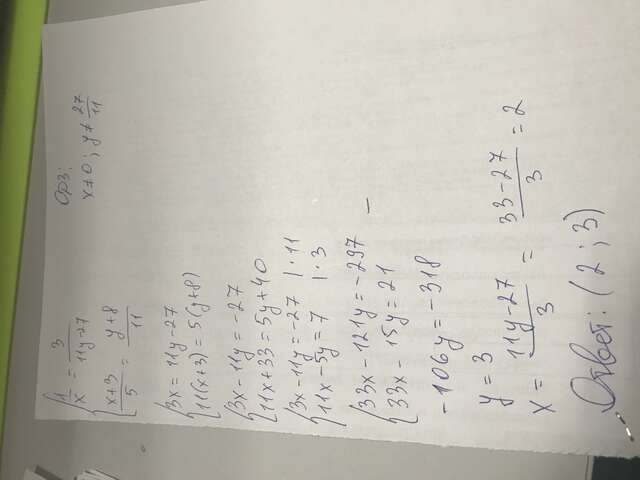 1/x = 3/(11y-27)
(x+3)/5 = (y+8)/11
ОРЗ:
x≠0; y≠ 27/11
3x = 11y-27
11(x+3) = 5(y+8)
3x-11y=-27
11x+33=5y+40
3x-11y=-27 |·11
11x-5y=7 |·3
33x-121y=-297 -
33x-15y=21
-106y=-318
y=3
x = (11y-27)/3 = (33-27)/3 = 2
Ответ: (2; 3)